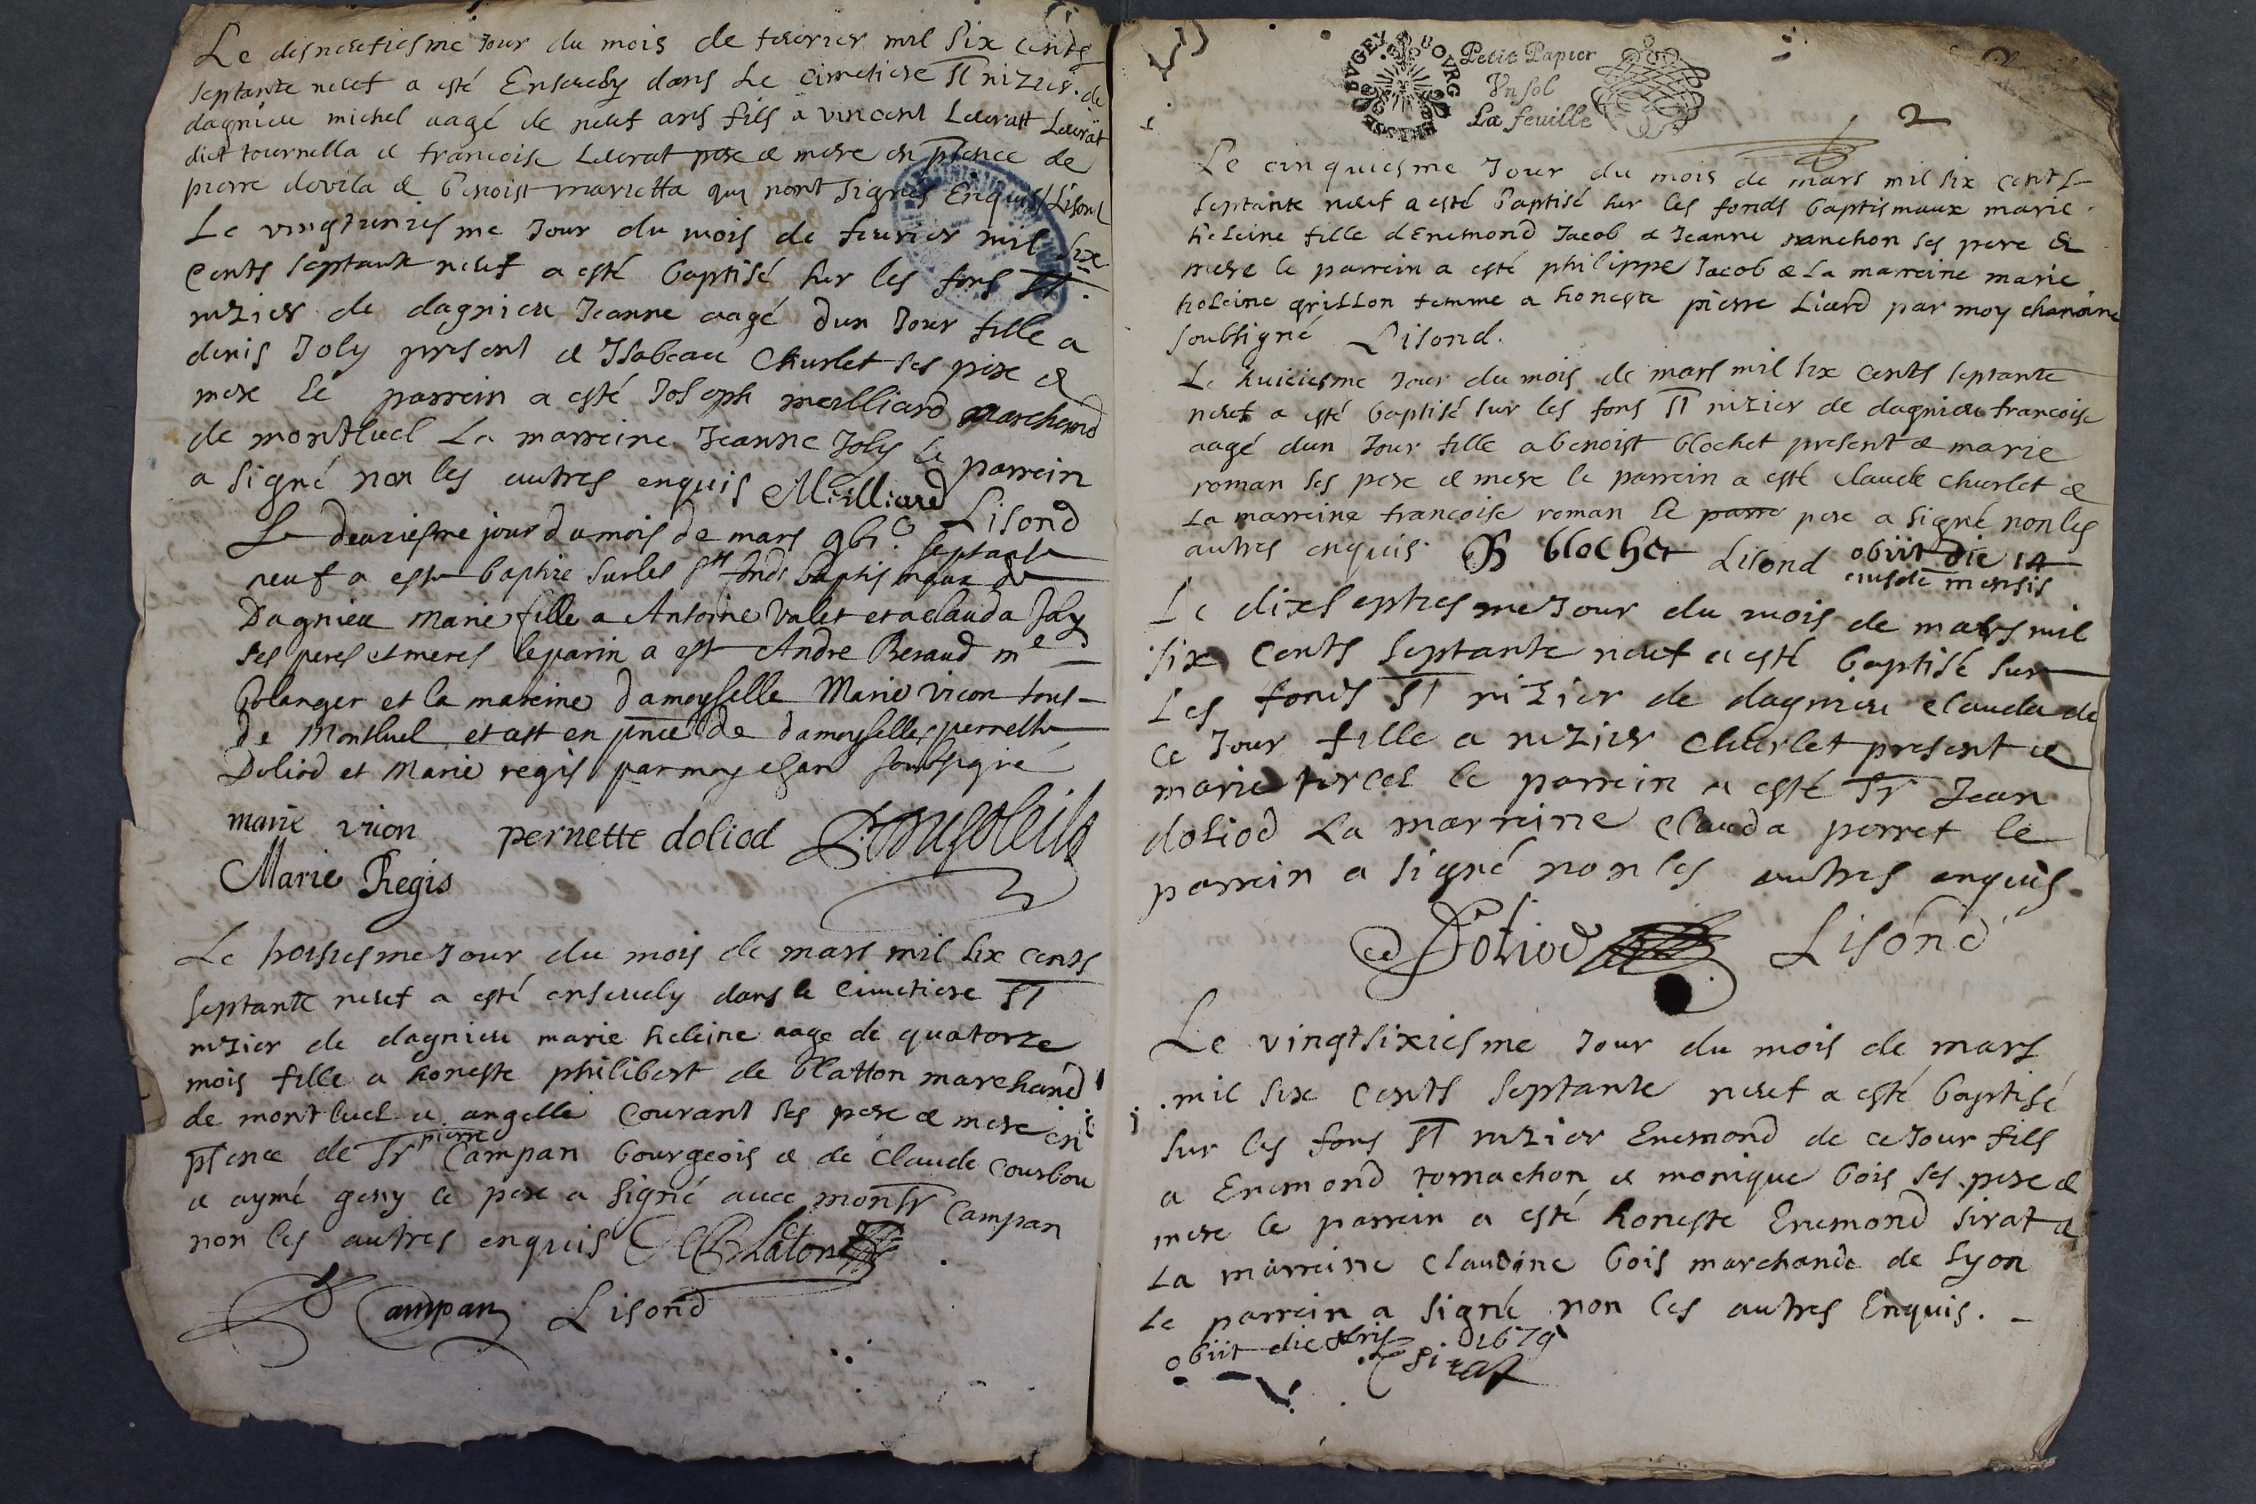 Le disneufiesme Jour du mois de feurier mil six cents
septante neuf a esté Enseuely dans le cimetiere St nizier de
dagnieu michel aagé de neuf ans fils a vincent Leurat
dict tournella & francoise Leurat pere & mere en pñence de
pierre dovila & benoist marietta qui nont signés Enquis Lisond
Le vingtuniesme Jour du mois de feurier mil six
cents septante neuf a esté baptisé sur les fons St
nizier de dagnieu Jeanne aagé dun Jour fille a
denis Joly present & Isabeau Churlet ses pere &
mere Le parrein a esté Joseph meilliard marchand
de montluel La marreine Jeanne Joly le parrein
a signé non les autres enquis Meilliard Lisond
Le deuxiesme jour du mois de mars septante
neuf a este baptize sur les Sts fonds baptismaux de
Dagnieu Marie fille a Antoine Valet et a clauda Joly
ses peres et meres le parin a est Andre Beraud me
bolanger et la mareine damoyselle Marie vion tous
de Montluel et ast en pnce de damoyselles pernette
Doliod et Marie regis par moy chan soubsigné
marie vion pernette doliod
Marie Regis
Le troisiesme Jour du mois de mars mil six cents
septante neuf a esté enseuely dans le cimetiere St
nizier de dagnieu marie heleine aage de quatorze
mois fille a honeste philibert de blatton marchand
de montluel & angelle Courant ses pere & mere en
pñence de Sr pierre Campan bourgeois & de Claude courbou
& aymé geny le pere a signé auec monsr Campan
non les autres enquis Blaton
Campan Lisond
BVGEY BOVRG BRESSE
Petit Papier
Vn sol
La feuille
2
Le cinquiesme Jour du mois de mars mil six cents
septante neuf a esté baptisé sur les fonds baptismaux marie
heleine fille dEnemond Jacob & Jeanne nanchon ses pere &
mere le parrein a esté philippe Jacob & la marreine marie
heleine grillon femme a honeste pierre Liard par moy chanoine
soubsigné Lisond.
Le huiciesme Jour du mois de mars mil six cents septante
neuf a esté baptisé sur les fons St nizier de dagnieu francoise
aagé dun Jour fille a benoist blochet present & marie
roman ses pere & mere le parrein a esté claude churlet &
la marreine francoise roman Le parre pere a signé non les
autres enquis. B blochet Lisond obiit die 14
eiusdē mensis
Le dixseptiesme Jour du mois de mars mil
six cents septante neuf a esté baptisé sur
Les fonds St nizier de dagnieu clauda de
ce Jour fille a nizier churlet present &
marie fircel le parrein a esté Sr Jean
doliod La marreine clauda perret le
parrein a signé non les autres enquis.
Doliod Lisond
Le vingtsixiesme Jour du mois de mars
mil six cents septante neuf a esté baptisé
sur les fons St nizier Enemond de ce Jour fils
a Enemond tornachon & monique bois ses pere &
mere le parrein a esté honeste Enemond sirat &
la marreine claudine bois marchande de lyon
le parrein a signé non les autres Enquis.
obiit die 1679
sirat